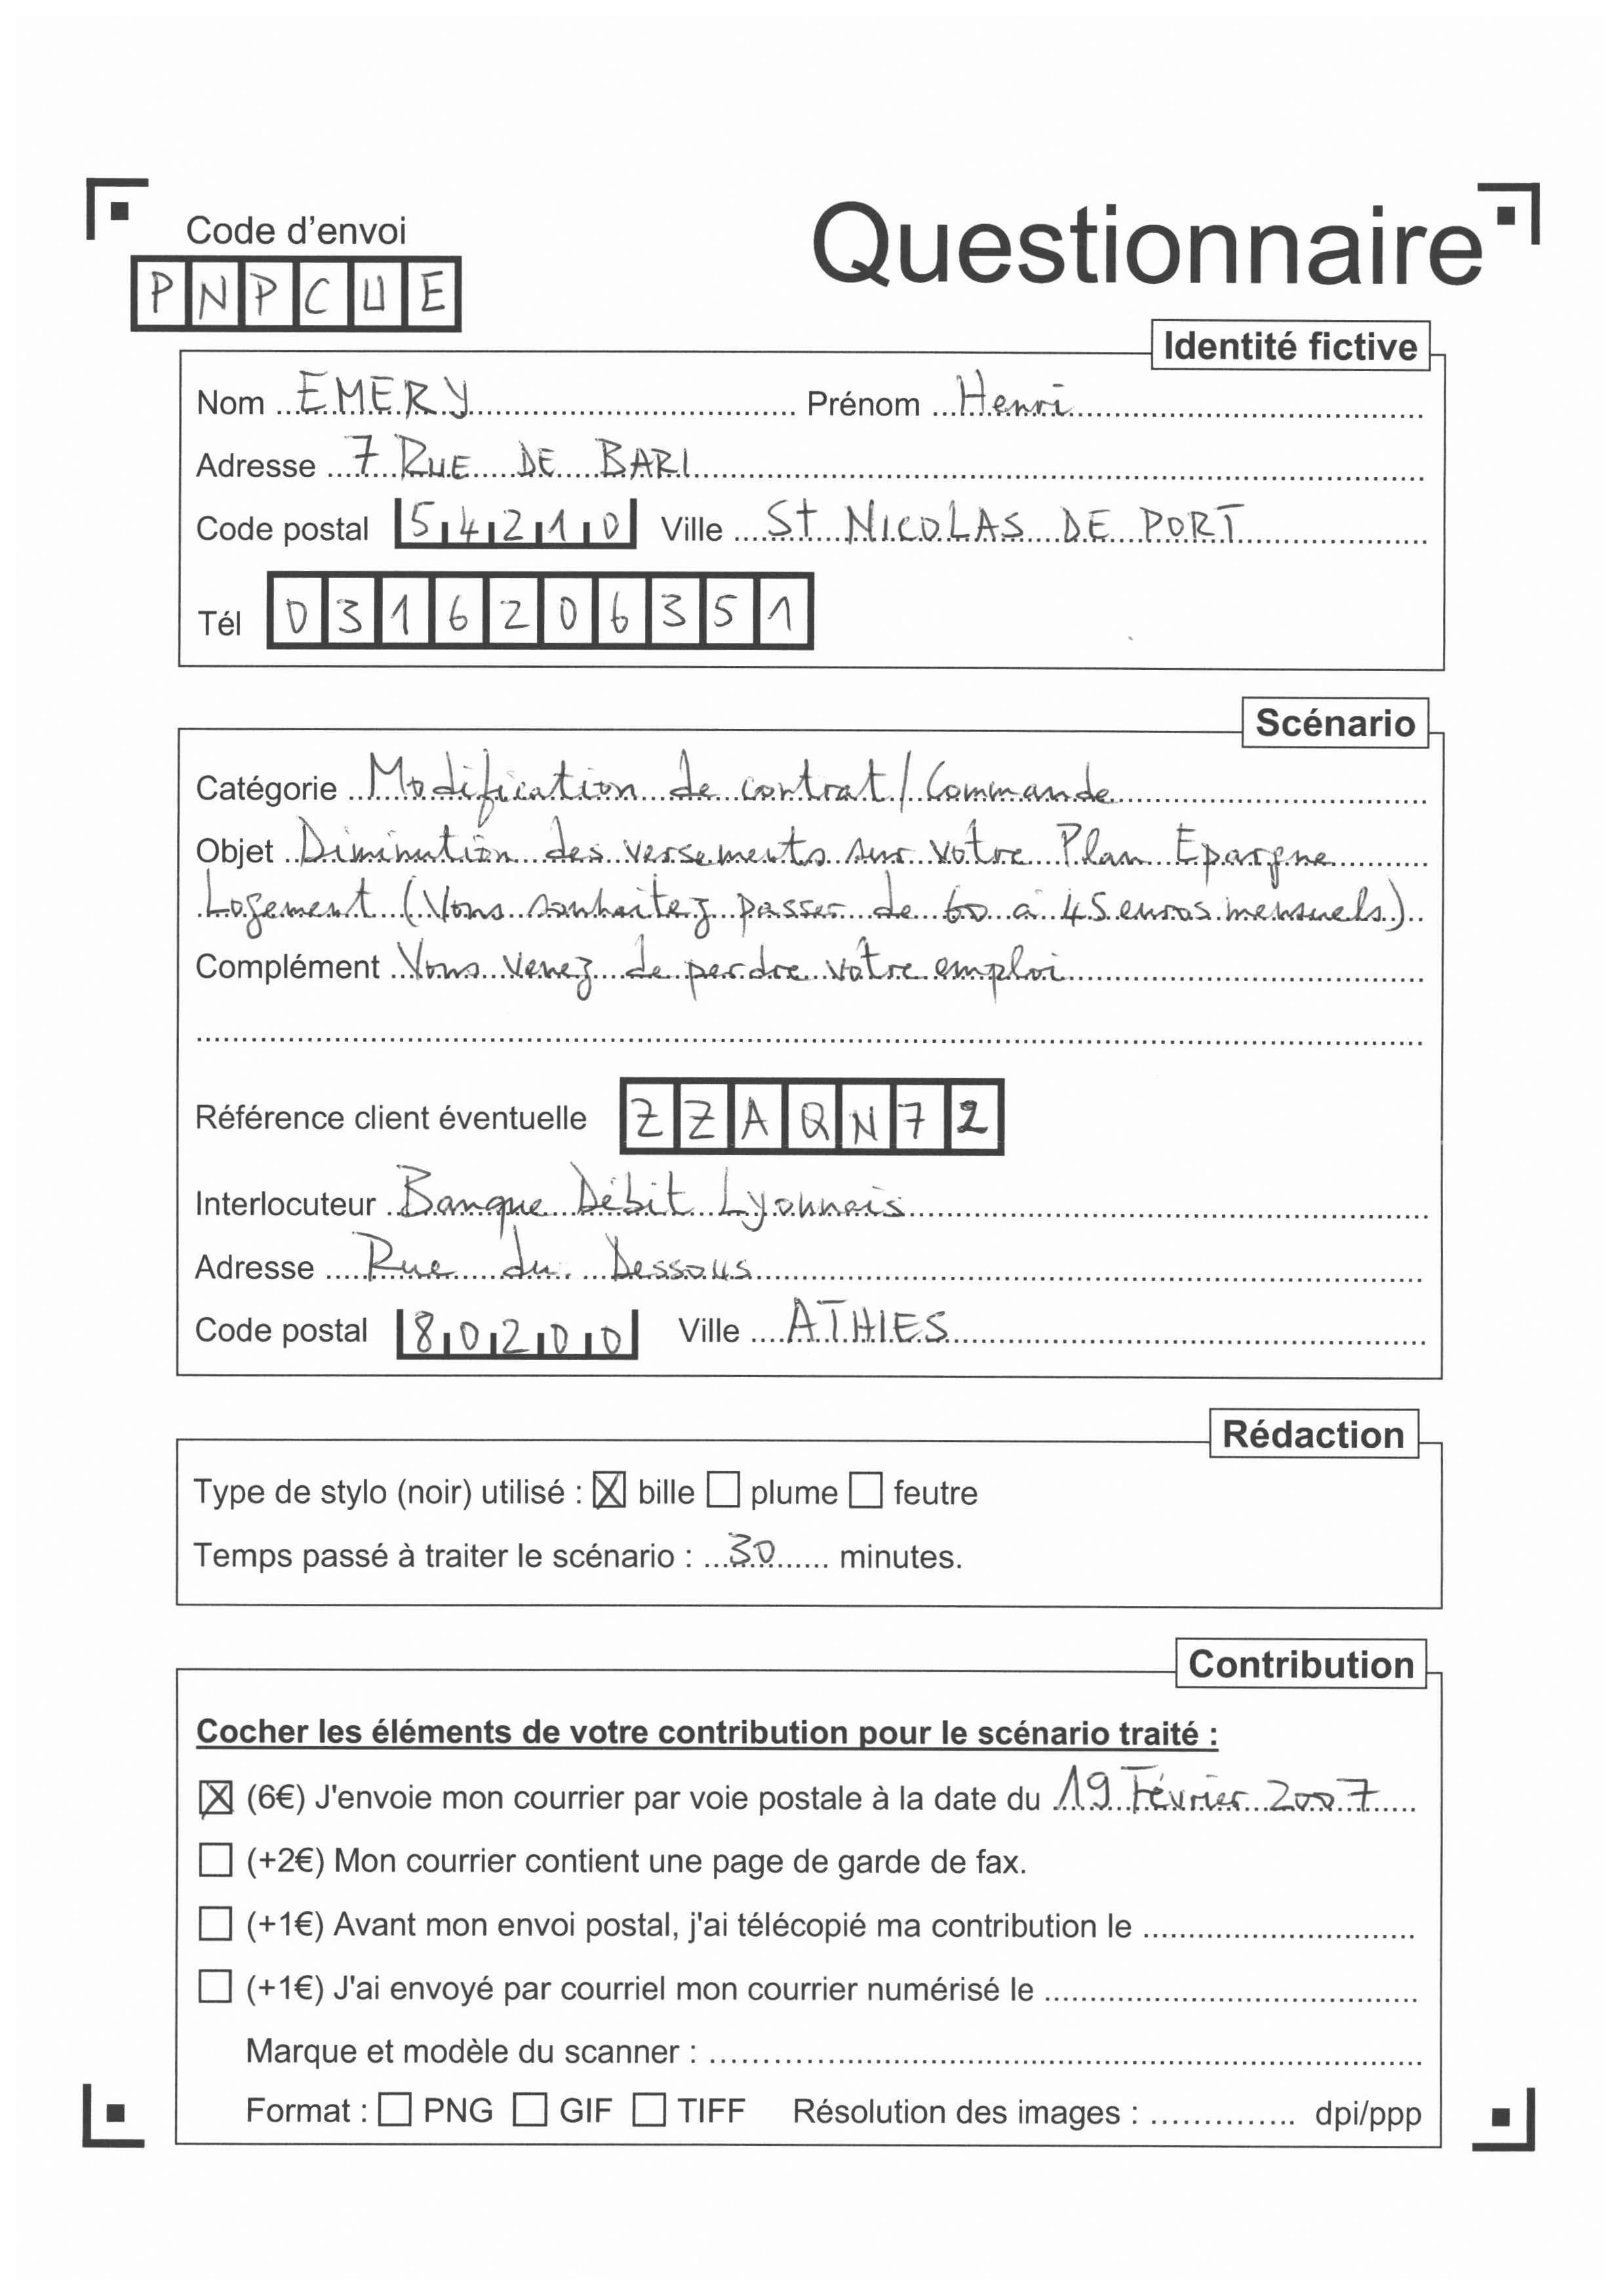 Code d'envoi
PNPCUE
Questionnaire
Identité fictive
Nom EMERY Prénom Henri
Adresse 7 RUE DE BARI
Code postal 54210 Ville St NICOLAS DE PORT
Tél 0316206351
Scénario
Catégorie Modification de contrat/Commande
Objet Diminution des versements sur votre Plan Epargne
Logement (Vous souhaitez passer de 60 à 45 euros mensuels)
Complément Vous venez de perdre votre emploi
Référence client éventuelle ZZAQN72
Interlocuteur Banque Débit Lyonnais
Adresse Rue du Dessous
Code postal 80200 Ville ATHIES
Rédaction
Type de stylo (noir) utilisé : ☒ bille ☐ plume ☐ feutre
Temps passé à traiter le scénario : 30 minutes.
Contribution
Cocher les éléments de votre contribution pour le scénario traité :
☒ (6€) J'envoie mon courrier par voie postale à la date du 19 Février 2007
☐ (+2€) Mon courrier contient une page de garde de fax.
☐ (+1€) Avant mon envoi postal, j'ai télécopié ma contribution le
☐ (+1€) J'ai envoyé par courriel mon courrier numérisé le
Marque et modèle du scanner :
Format : ☐ PNG ☐ GIF ☐ TIFF Résolution des images : dpi/ppp